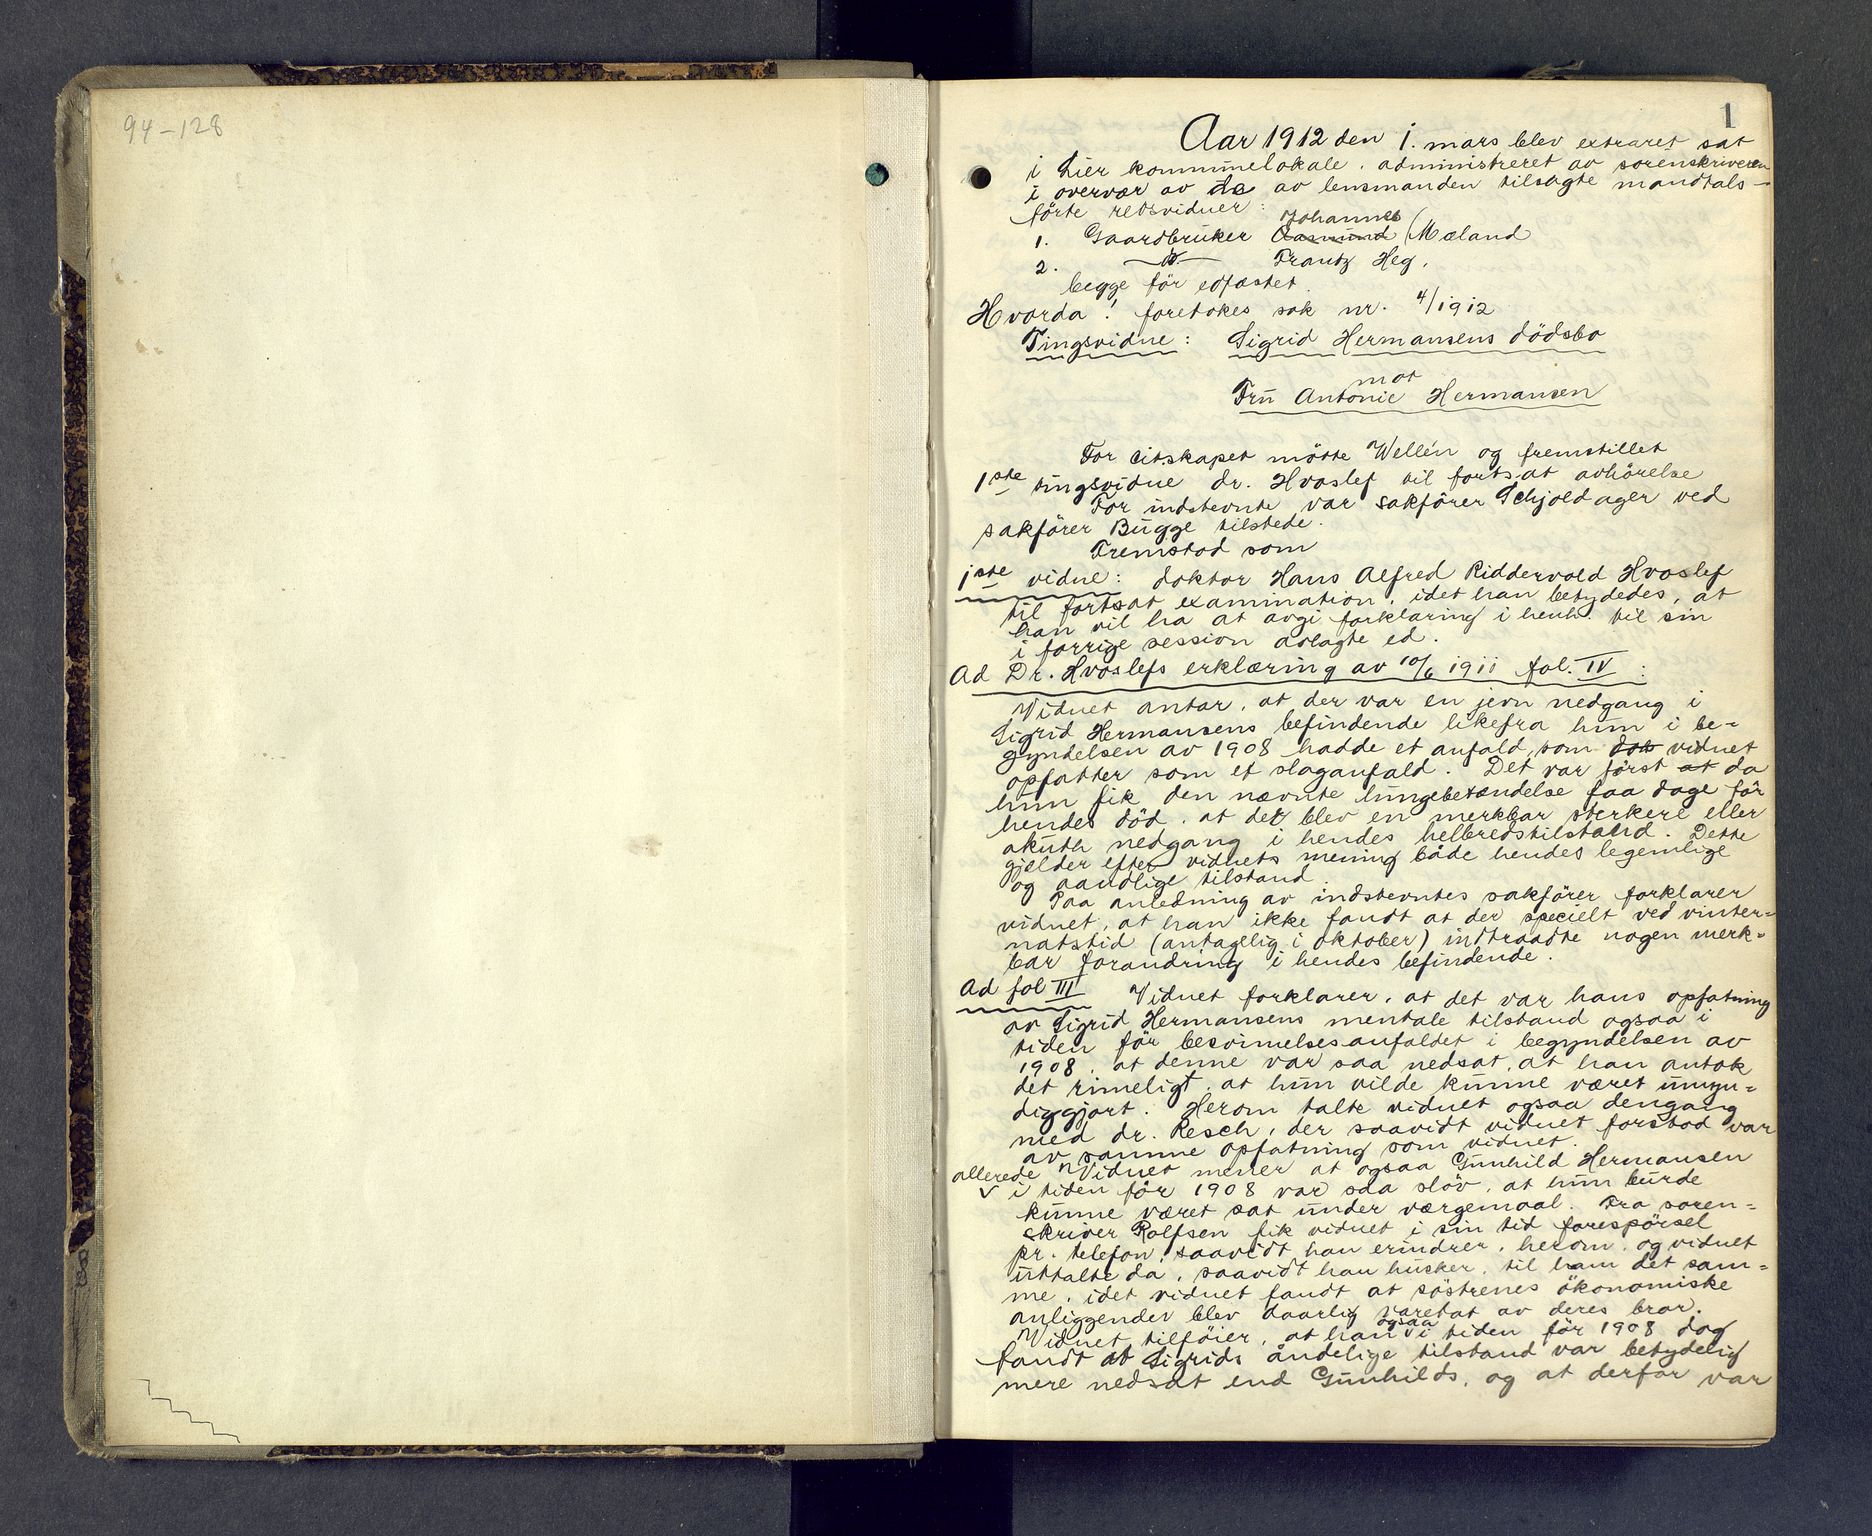 94-128
1
Aar 1912 den 1. mars blev extraret sat
i Lier kommunelokale, administreret av sorenskriveren
i overvær av de av lensmanden tilsagte mandtals-
förte retsvidner:
1. Gaardbruker Aasmund Johannes Mæland
2. do Frantz Heg.
begge för edfæstet.
Hvorda! foretokes sak nr. 4/1912
Tingsvidne: Sigrid Hermansens dödsbo
mot
Fru Antonie Hermansen
For citskapet mötte Wellén og fremstillet
1ste tingsvidne dr. Hvoslef til forts.at avhörelse
For indstevnte var sakförer Schjoldager ved
sakförer Bugge tilstede.
Fremstod som
1ste vidne: doktor Hans Alfred Riddervold Hvoslef
til fortsat examination, idet han betydedes, at
han vil ha at avgi forklaring i henh. til sin
i forrige session avlagte ed.
Ad Dr. Hvoslefs erklæring av 10/6 1911 fol. IV :
Vidnet antar, at der var en jevn nedgang i
Sigrid Hermansens befindende likefra hun i be-
gyndelsen av 1908 hadde et anfald, som dok vidnet
opfatter som et slaganfald. Det var först at da
hun fik den nævnte lungebetændelse faa dage för
hendes död, at det blev en merkbar sterkere eller
akuth nedgang i hendes helbredstilstand. Dette
gjælder efter vidnets mening både hendes legemlige
og aandlige tilstand.
Paa anledning av indstevntes sakförer forklarer
vidnet, at han ikke fandt at der specielt ved vinter-
natstid (antagelig i oktober) indtraadte nogen merk-
bar forandring i hendes befindende.
Ad fol III Vidnet forklarer, at det var hans opfatning
av Sigrid Hermansens mentale tilstand ogsaa i
tiden för besvimelsesanfaldet i begyndelsen av
1908, at denne var saa nedsat, at han antok
det rimeligt, at hun vilde kunne været umyn-
diggjort. Herom talte vidnet ogsaa dengang
med dr. Resch, der saavidt vidnet forstod var
av samme opfatning som vidnet.
allerede Vidnet mener at ogsaa Gunhild Hermansen
v i tiden för 1908 var saa slöv, at hun burde
kunne været sat under værgemaal. Fra soren-
skriver Rolfsen fik vidnet i sin tid forespörsel
pr. telefon, saavidt han erindrer, herom, og vidnet
uttalte da, saavidt han husker, til ham det sam-
me, idet vidnet fandt at söstrenes ökonomiske
anliggender blev daarlig varetat av deres bror.
Vidnet tilföier, at han ogsaa v i tiden för 1908 dog
fandt at Sigrids åndelige tilstand var betydelig
mere nedsat end Gunhilds, og at derfor var